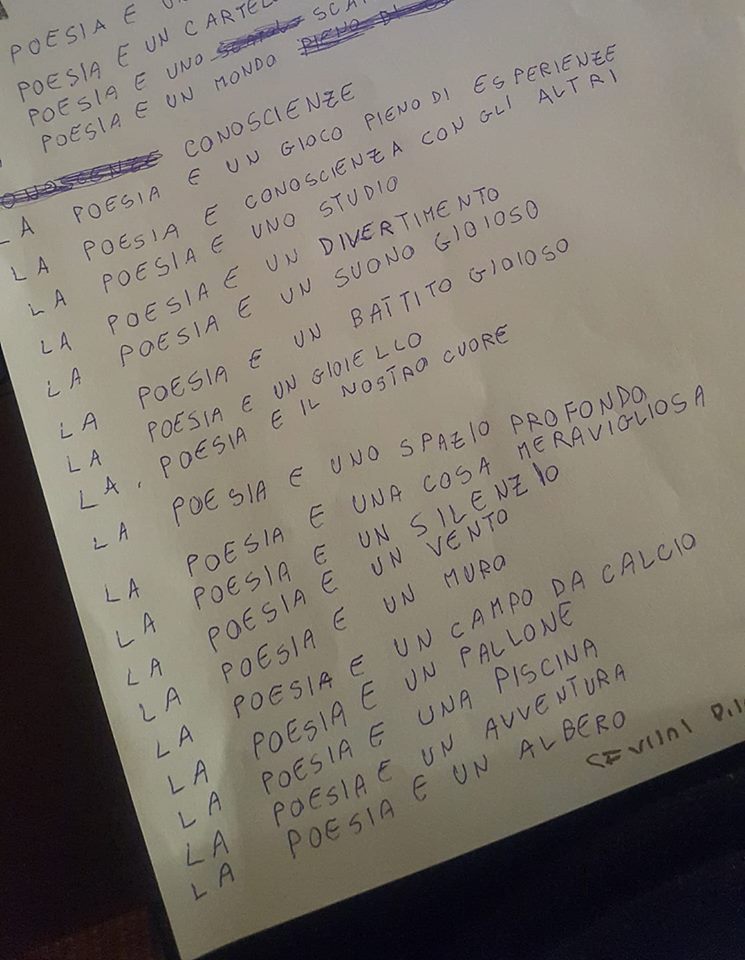 POESIA E
POESIA E UN
POESIA E UNO
POESIA E UN MONDO
CONOSCIENZE
LA POESIA E UN GIOCO PIENO DI ESPERIENZE
LA POESIA E CONOSCIENZA CON GLI ALTRI
LA POESIA E UNO STUDIO
LA POESIA E UN DIVERTIMENTO
LA POESIA E UN SUONO GIOIOSO
LA POESIA E UN BATTITO GIOIOSO
LA POESIA E UN GIOIELLO
LA POESIA E IL NOSTRO CUORE
LA POESIA E UNO SPAZIO PROFONDO
LA POESIA E UNA COSA MERAVIGLIOSA
LA POESIA E UN SILENZIO
LA POESIA E UN VENTO
LA POESIA E UN MURO
LA POESIA E UN CAMPO DA CALCIO
LA POESIA E UN PALLONE
LA POESIA E UNA PISCINA
LA POESIA E UN AVVENTURA
LA POESIA E UN ALBERO